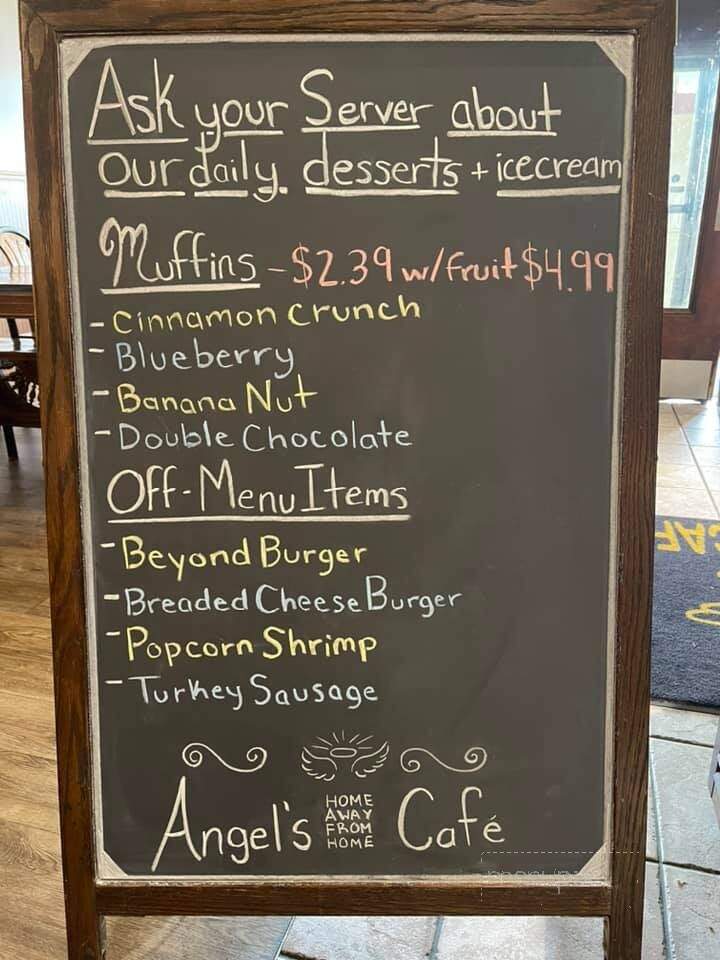 Ask your Server about
our daily desserts + icecream
Muffins - $2.39 w/fruit $4.99
- Cinnamon Crunch
- Blueberry
- Banana Nut
- Double Chocolate
Off-Menu Items
- Beyond Burger
- Breaded Cheese Burger
- Popcorn Shrimp
- Turkey Sausage
Angel's HOME AWAY FROM HOME Café